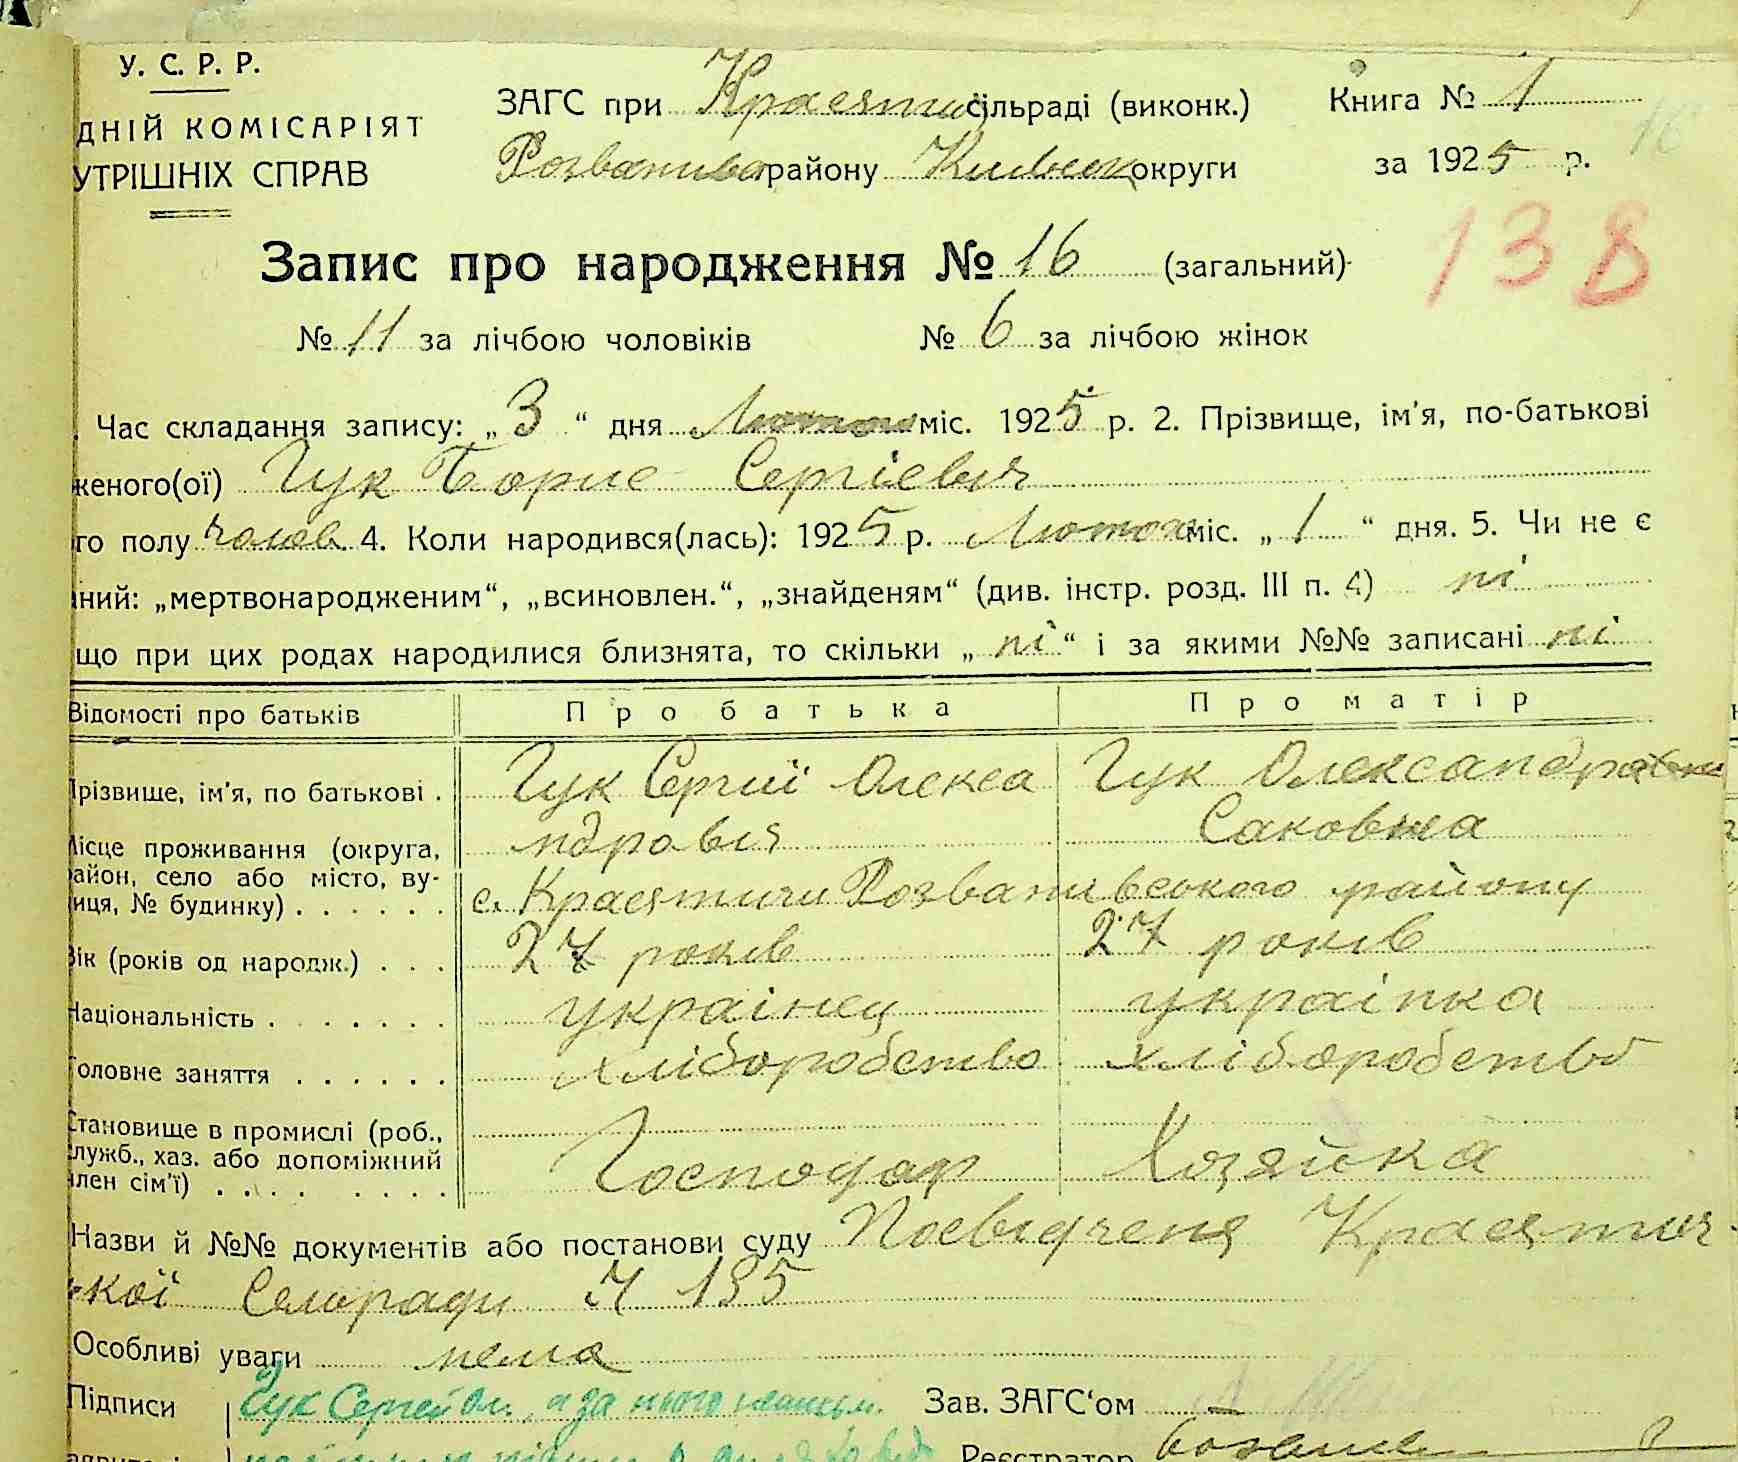 У. С. Р. Р.
ДНІЙ КОМІСАРІЯТ
УТРІШНІХ СПРАВ
ЗАГС при Красятиц сільраді (виконк.)
Розважівс району Київськ округи
Книга № 1
за 1925 р.
138
Запис про народження № 16 (загальний)
№ 11 за лічбою чоловіків № 6 за лічбою жінок
Час складання запису: „3“ дня Лютого міс. 1925 р. 2. Прізвище, ім’я, по-батькові
женого(ої) Гук Борис Сергієвич
го полу чолов 4. Коли народився(лась): 1925 р. Лютого міс. „1“ дня. 5. Чи не є
ний: „мертвонародженим“, „всиновлен.“, „знайденям“ (див. інстр. розд. III п. 4) ні
що при цих родах народилися близнята, то скільки „ні“ і за якими №№ записані ні
Відомості про батьків Про батька Про матір
Прізвище, ім’я, по батькові . Гук Сергій Олекса Гук Олександра
ндрович Саковна
Місце проживання (округа,
район, село або місто, ву-
иця, № будинку) . . . . . . с. Красятичи Розважівського району
Вік (років од народж.) . . . 27 років 27 років
Національність . . . . . . . українец українка
Головне заняття . . . . . . хліборобство хліборобство
Становище в промислі (роб.,
служб., хаз. або допоміжний
член сім’ї) . . . . . . . . Господар Хозяйка
Назви й №№ документів або постанови суду Посвідченя Красятич
кої Селоради
Особливі уваги нема
Підписи Гук Сергей Ол. а за нього
Зав. ЗАГС‘ом
Реєстратор